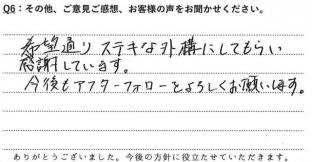 Q6：その他、ご意見ご感想、お客様の声をお聞かせください。
希望通りステキな外構にしてもらい
感謝しています。
今後もアフターフォローをよろしくお願いします。
ありがとうございました。今後の方針に役立たせていただきます。